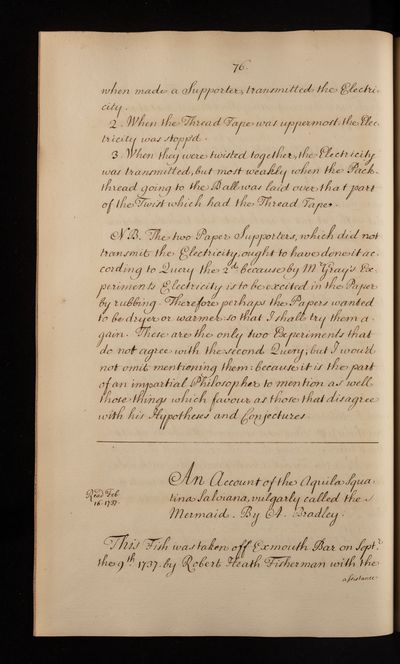 76.
when made a Supporter, transmitted the Electri-
city.
2. When the Thread Tape was uppermost, the Elec-
tricity was stopp'd.
3. When they were twisted together, the Electricity
was transmitted, but most weakly when the Pack-
thread going to the Ball was laid over that part
of the Twist which had the Thread Tape.
N.B. The two Paper Supporters, which did not
transmit the Electricity, ought to have done it ac-
cording to Query the 2d. because by Mr. Gray's Ex-
periments Electricity is to be excited in the Paper
by rubbing. Therefore perhaps the Papers wanted
to be dryer or warmer so that I shall try them a-
gain. These are the only two Experiments that
do not agree with the second Query; but I wou'd
not omit mentioning them: because it is the part
of an impartial Philosopher to mention as well
those things which favour as those that disagree
with his Hypotheses and Conjectures.
An Account of the Aquila Squa-
Read Feb.
16. 1737.
tina Salviana, vulgarly called the
Mermaid. By A. Bradley.
This Fish was taken off Exmouth Bar on Sept.r
the 9th. 1737. by Robert Heath Fisherman with the
assistance